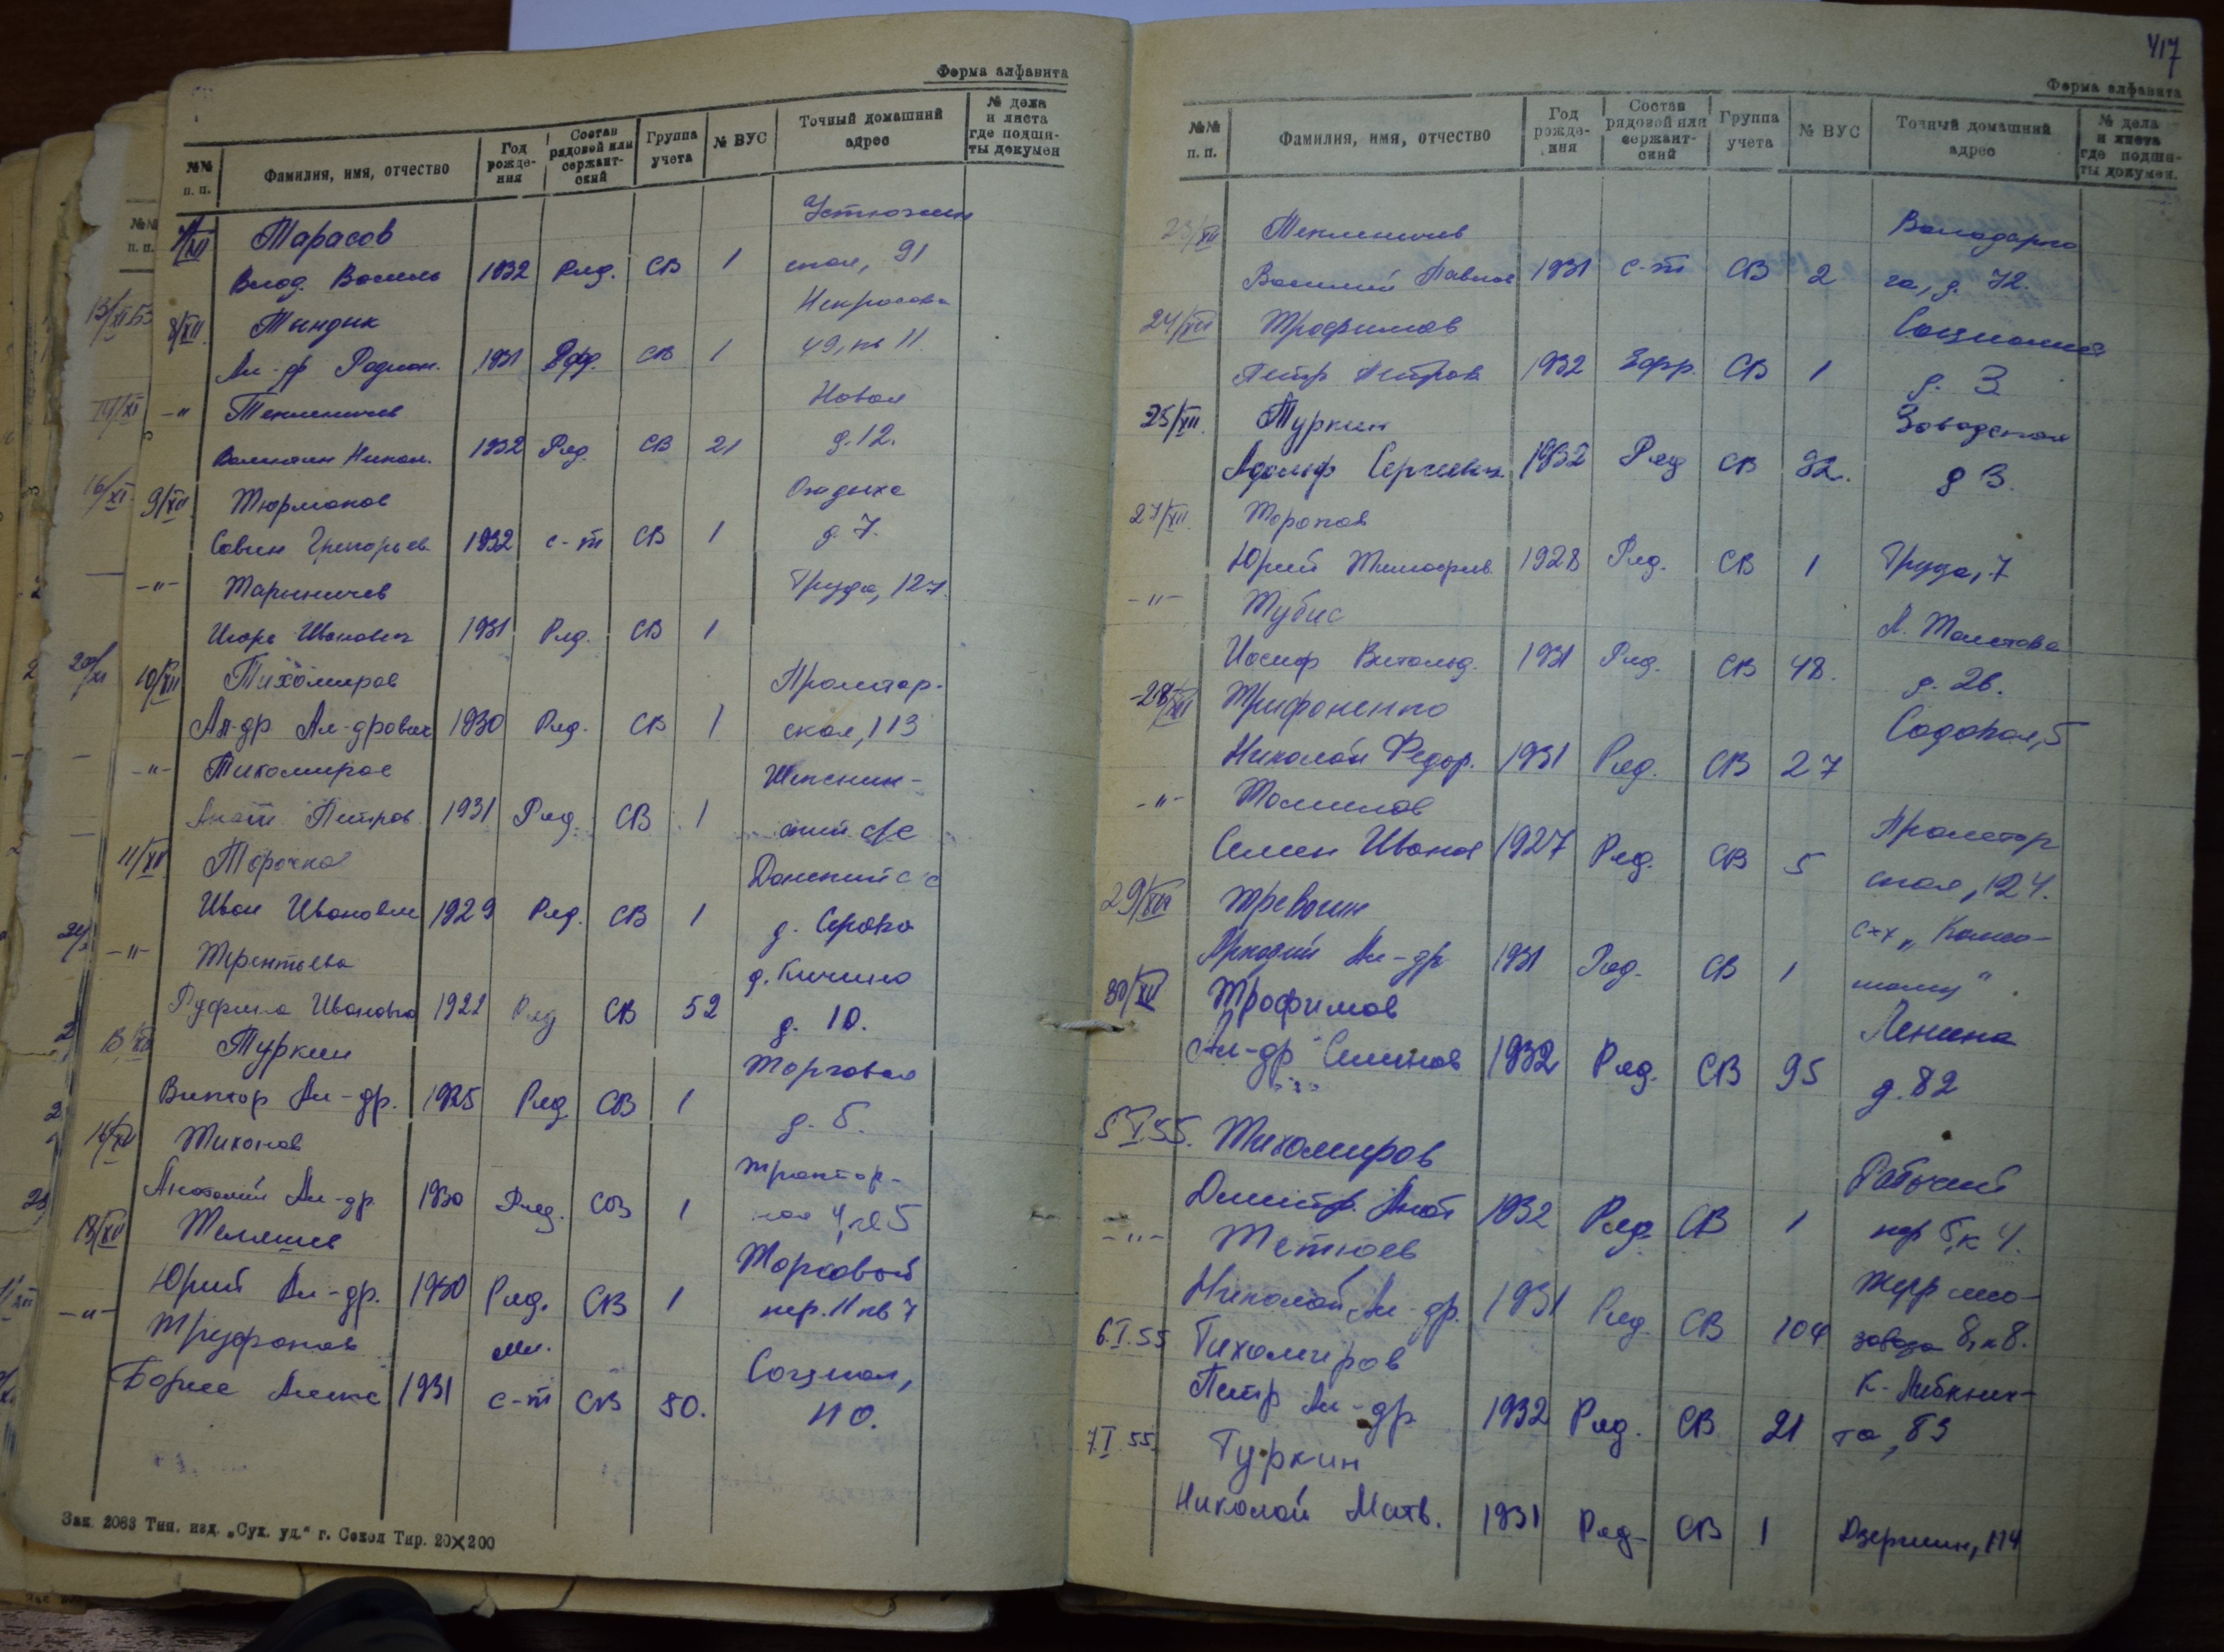 Форма алфавита
№№ п. п.
Фамилия, имя, отчество
Год рожде-ния
Состав рядовой или сержант-ский
Группа учета
№ ВУС
Точный домашний адрес
№ дела и листа где подши-ты докумен
Тарасов
Влад. Василь 1932 Ряд. СВ 1 ская, 91
8/XII Тындык Некрасова
Ал-др Родион. 1931 Ефр. СВ 1 49, кв 11
-"- Текленичев Новая
Валентин Никол. 1932 Ряд. СВ 21 д. 12.
9/XII Тюрманов
Савин Григорьев. 1932 с-т СВ 1 д. 7.
-"- Тарыничев Труда, 127
Игорь Иванович 1931 Ряд. СВ 1
10/XII Тихомиров Пролетар-
Ал-др Ал-дрович 1930 Ряд. СВ 1 ская, 113
-"- Тихомиров
Анат. Петров. 1931 Ряд. СВ 1 ский с/с
11/XII Торочков
Иван Иванович 1929 Ряд. СВ 1
-"- Терентьева
Руфина Ивановна 1922 Ряд СВ 52 д. 10.
Туркин Торговая
Виктор Ал-др. 1925 Ряд. СВ 1 д. 5.
16/XII Тихонов Трактор-
Анатолий Ал-др. 1930 Ряд. СВ 1 ная 4, кв 5
18/XII Телешев Торговый
Юрий Ал-др. 1930 Ряд. СВ 1 пер. 11 кв 7
-"- Труфанов мл.
Борис Алекс 1931 с-т СВ 80.
Зак. 2083 Тип. изд. „Сух. уд." г. Сокол Тир. 20×200
417
Форма алфавита
№№ п. п.
Фамилия, имя, отчество
Год рожде-ния
Состав рядовой или сержант-ский
Группа учета
№ ВУС
Точный домашний адрес
№ дела и листа где подши-ты докумен.
23/XII Текленичев Володарско
Василий Павлов 1931 с-т СВ 2 го, д. 72.
24/XII Трофимов
Петр Петров. 1932 Ефр. СВ 1 д. 3
25/XII. Туркин Заводская
Адольф Сергеевич. 1932 Ряд СВ 92. д 3.
27/XII. Торопов
Юрий Тимофеев. 1928 Ряд. СВ 1 Труда, 7
-"- Тубис Л. Толстова
Иосиф Витольд. 1931 Ряд. СВ 48. д. 26.
28/XII Трифоненко Садовая, 5
Николай Федор. 1931 Ряд. СВ 27
-"- Пролетар
Семен Иванов 1927 Ряд. СВ 5 ская, 124.
29/XII Тревогин
Аркадий Ал-др 1931 Ряд. СВ 1
30/XII Трофимов Ленина
Ал-др Семенов 1932 Ряд. СВ 95 д. 82
5.I.55. Тихомиров Рабочий
Дмитр. Анат 1932 Ряд. СВ 1 пер 5, к 4.
-"- Тетюев
Николай Ал-др. 1931 Ряд. СВ 104 завода 8, к 8.
6.I.55 Тихомиров К. Либкнех-
Петр Ал-др 1932 Ряд. СВ 21 та, 83
7.I.55. Туркин
Николай Матв. 1931 Ряд- СВ 1 Дзержин, 114